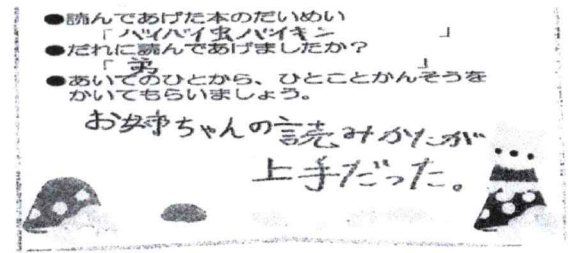 ●読んであげた本のだいめい
「バイバイ虫バイキン」
●だれに読んであげましたか？
「弟」
●あいてのひとから、ひとことかんそうを
かいてもらいましょう。
お姉ちゃんの読みかたが
上手だった。